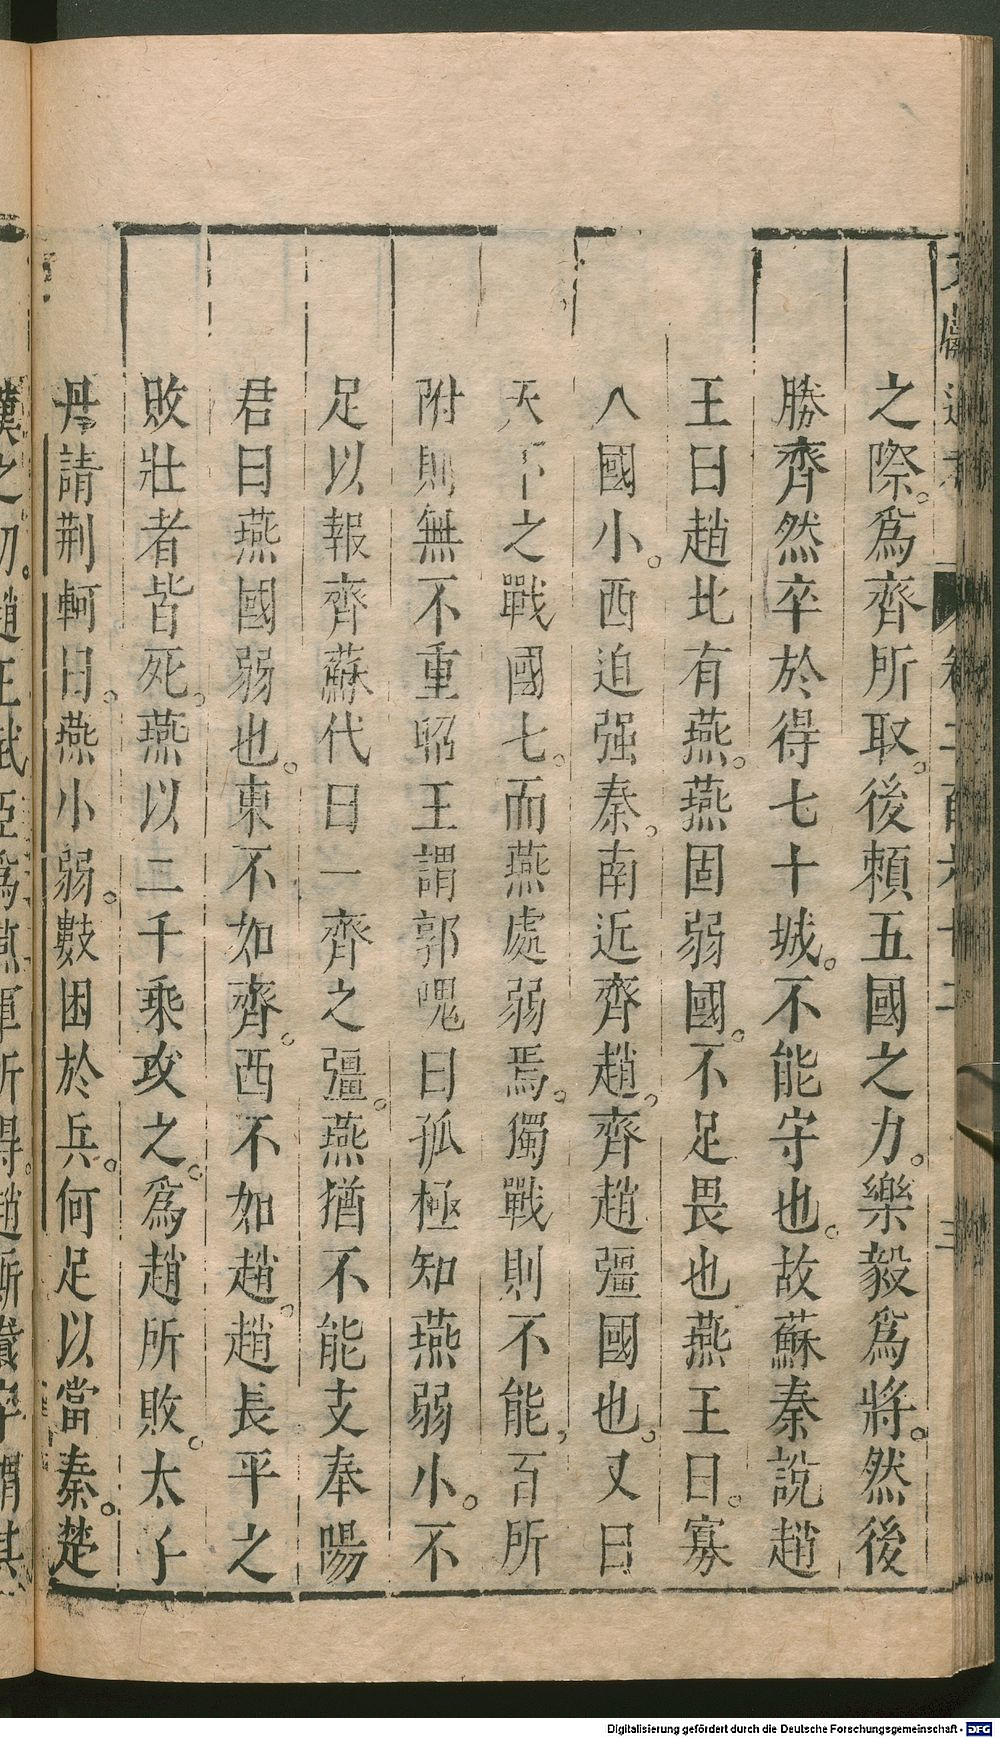 之際。爲齊所取。後賴五國之力。樂毅爲將。然後
勝齊然卒於得七十城。不能守也。故蘇秦說趙
王曰趙北有燕。燕固弱國。不足畏也燕王曰。寡
人國小。西迫强秦。南近齊趙。齊趙彊國也。又曰
天下之戰國七。而燕處弱焉。獨戰則不能，百所
附則無不重昭王謂郭隗曰孤極知燕弱小。不
足以報齊蘇代曰一齊之彊。燕猶不能支奉陽
君曰燕國弱也。東不如齊。西不如趙。趙長平之
敗壯者皆死。燕以二千乘攻之。爲趙所敗。太子
丹請荆軻曰。燕小弱。數困於兵。何足以當秦。楚
漢之初。趙王武臣爲燕軍所得。趙厮養卒謂其
Digitalisierung gefördert durch die Deutsche Forschungsgemeinschaft - DFG